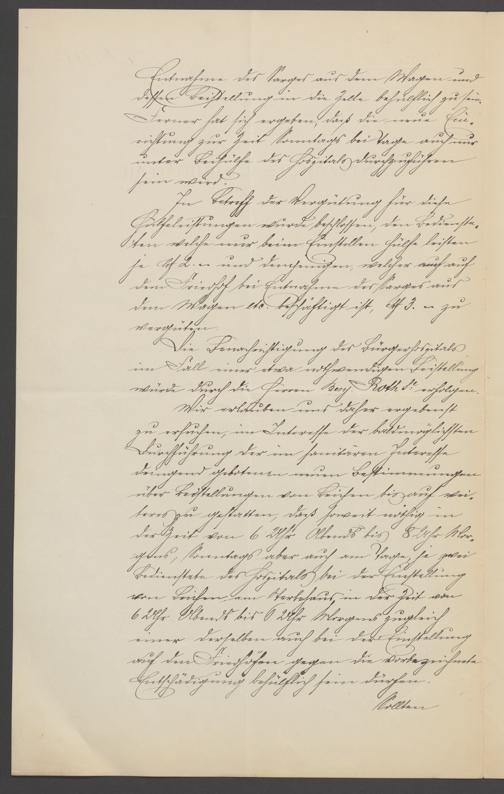 Entnahme des Sarges aus dem Wagen und
dessen Beistellung in die Zelle behülflich zu sein.
Ferner hat sich ergeben, daß die neue Ein-
richtung zur Zeit Sonntags bei Tage auch nur
unter Beihülfe des Hospitals durchzuführen
sein wird.
In Betreff der Vergütung für diese
Hülfeleistungen wurde beschlossen, den Bedienste-
ten welche nur beim Einstellen Hülfe leisten
je M 2.– und demjenigen, welcher auch auf
dem Friedhof bei Entnahme des Sarges aus
dem Wagen etc beschäftigt ist, M 3.– zu
vergüten.
Die Benachrichtigung des Bürgerhospitals
im Fall einer etwa nothwendigen Beistellung
würde durch die Herren Roth erfolgen.
Wir erlauben uns daher ergebenst
zu ersuchen, im Interesse der baldmöglichsten
Durchführung der im sanitären Interesse
dringend gebotenen neuen Bestimmungen
über Beistellungen von Leichen bis auf wei-
teres zu gestatten, daß soweit nöthig in
der Zeit von 6 Uhr Abends bis 8 Uhr Mor-
gens, Sonntags aber auch am Tage, je zwei
Bedienstete des Hospitals bei der Einstellung
von Leichen am Sterbehaus, in der Zeit von
6 Uhr Abends bis 6 Uhr Morgens zugleich
einer derselben auch bei der Einstellung
auf den Friedhöfen gegen die vorbezeichnete
Entschädigung behülflich sein dürfen.
Sollten